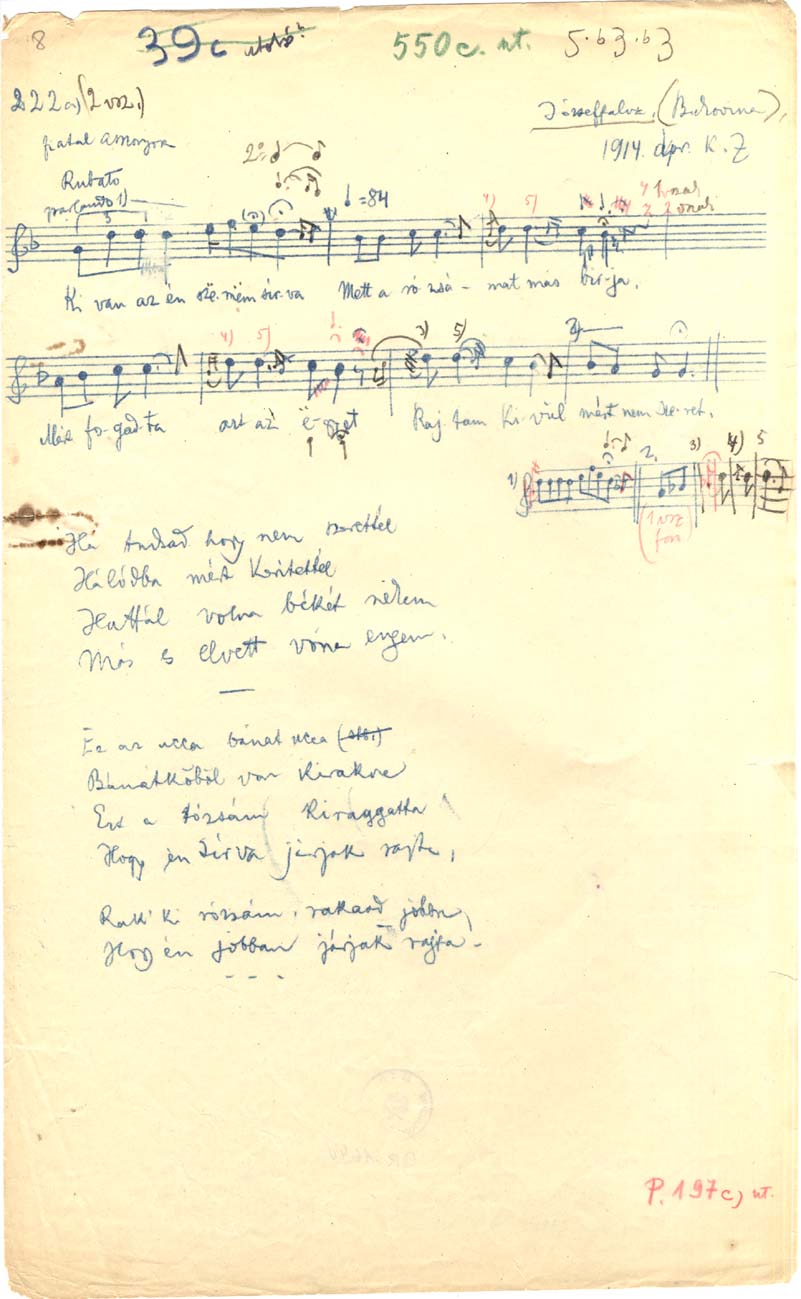 8
39c utolsó
550c. nt. 5·b3·b3
222a) (2 vsz.)
Józseffalva, (Bukovina),
fiatal asszony
1914. ápr. K. Z
Rubato
parlando 1)
2º
♩=84
4) 5)
Ki van az én szë-mëm sír-va Mett a ró-zsá-mat más bir-ja,
4) 5) 3) 5) 2)
Mért fo-gad-ta azt az ë-gyet Raj-tam kí-vül mért nem sze-ret.
1) 2. 3) 4) 5
(1 vsz
Há tudtad hogy nem szerettél
Hálódba mért kerítettél
Hattál volna békét nékem
Más es elvett vóna engem.
Ez az ucca bánat ucca (stb.)
Bánatkőből van kirakva
Ezt a rózsám kiraggatta
Hogy én sírva járjak rajta,
Rakd ki rózsám, rakaod jobban
Hogy én jobban járjak rajta-
- - -
P. 197c) nt.